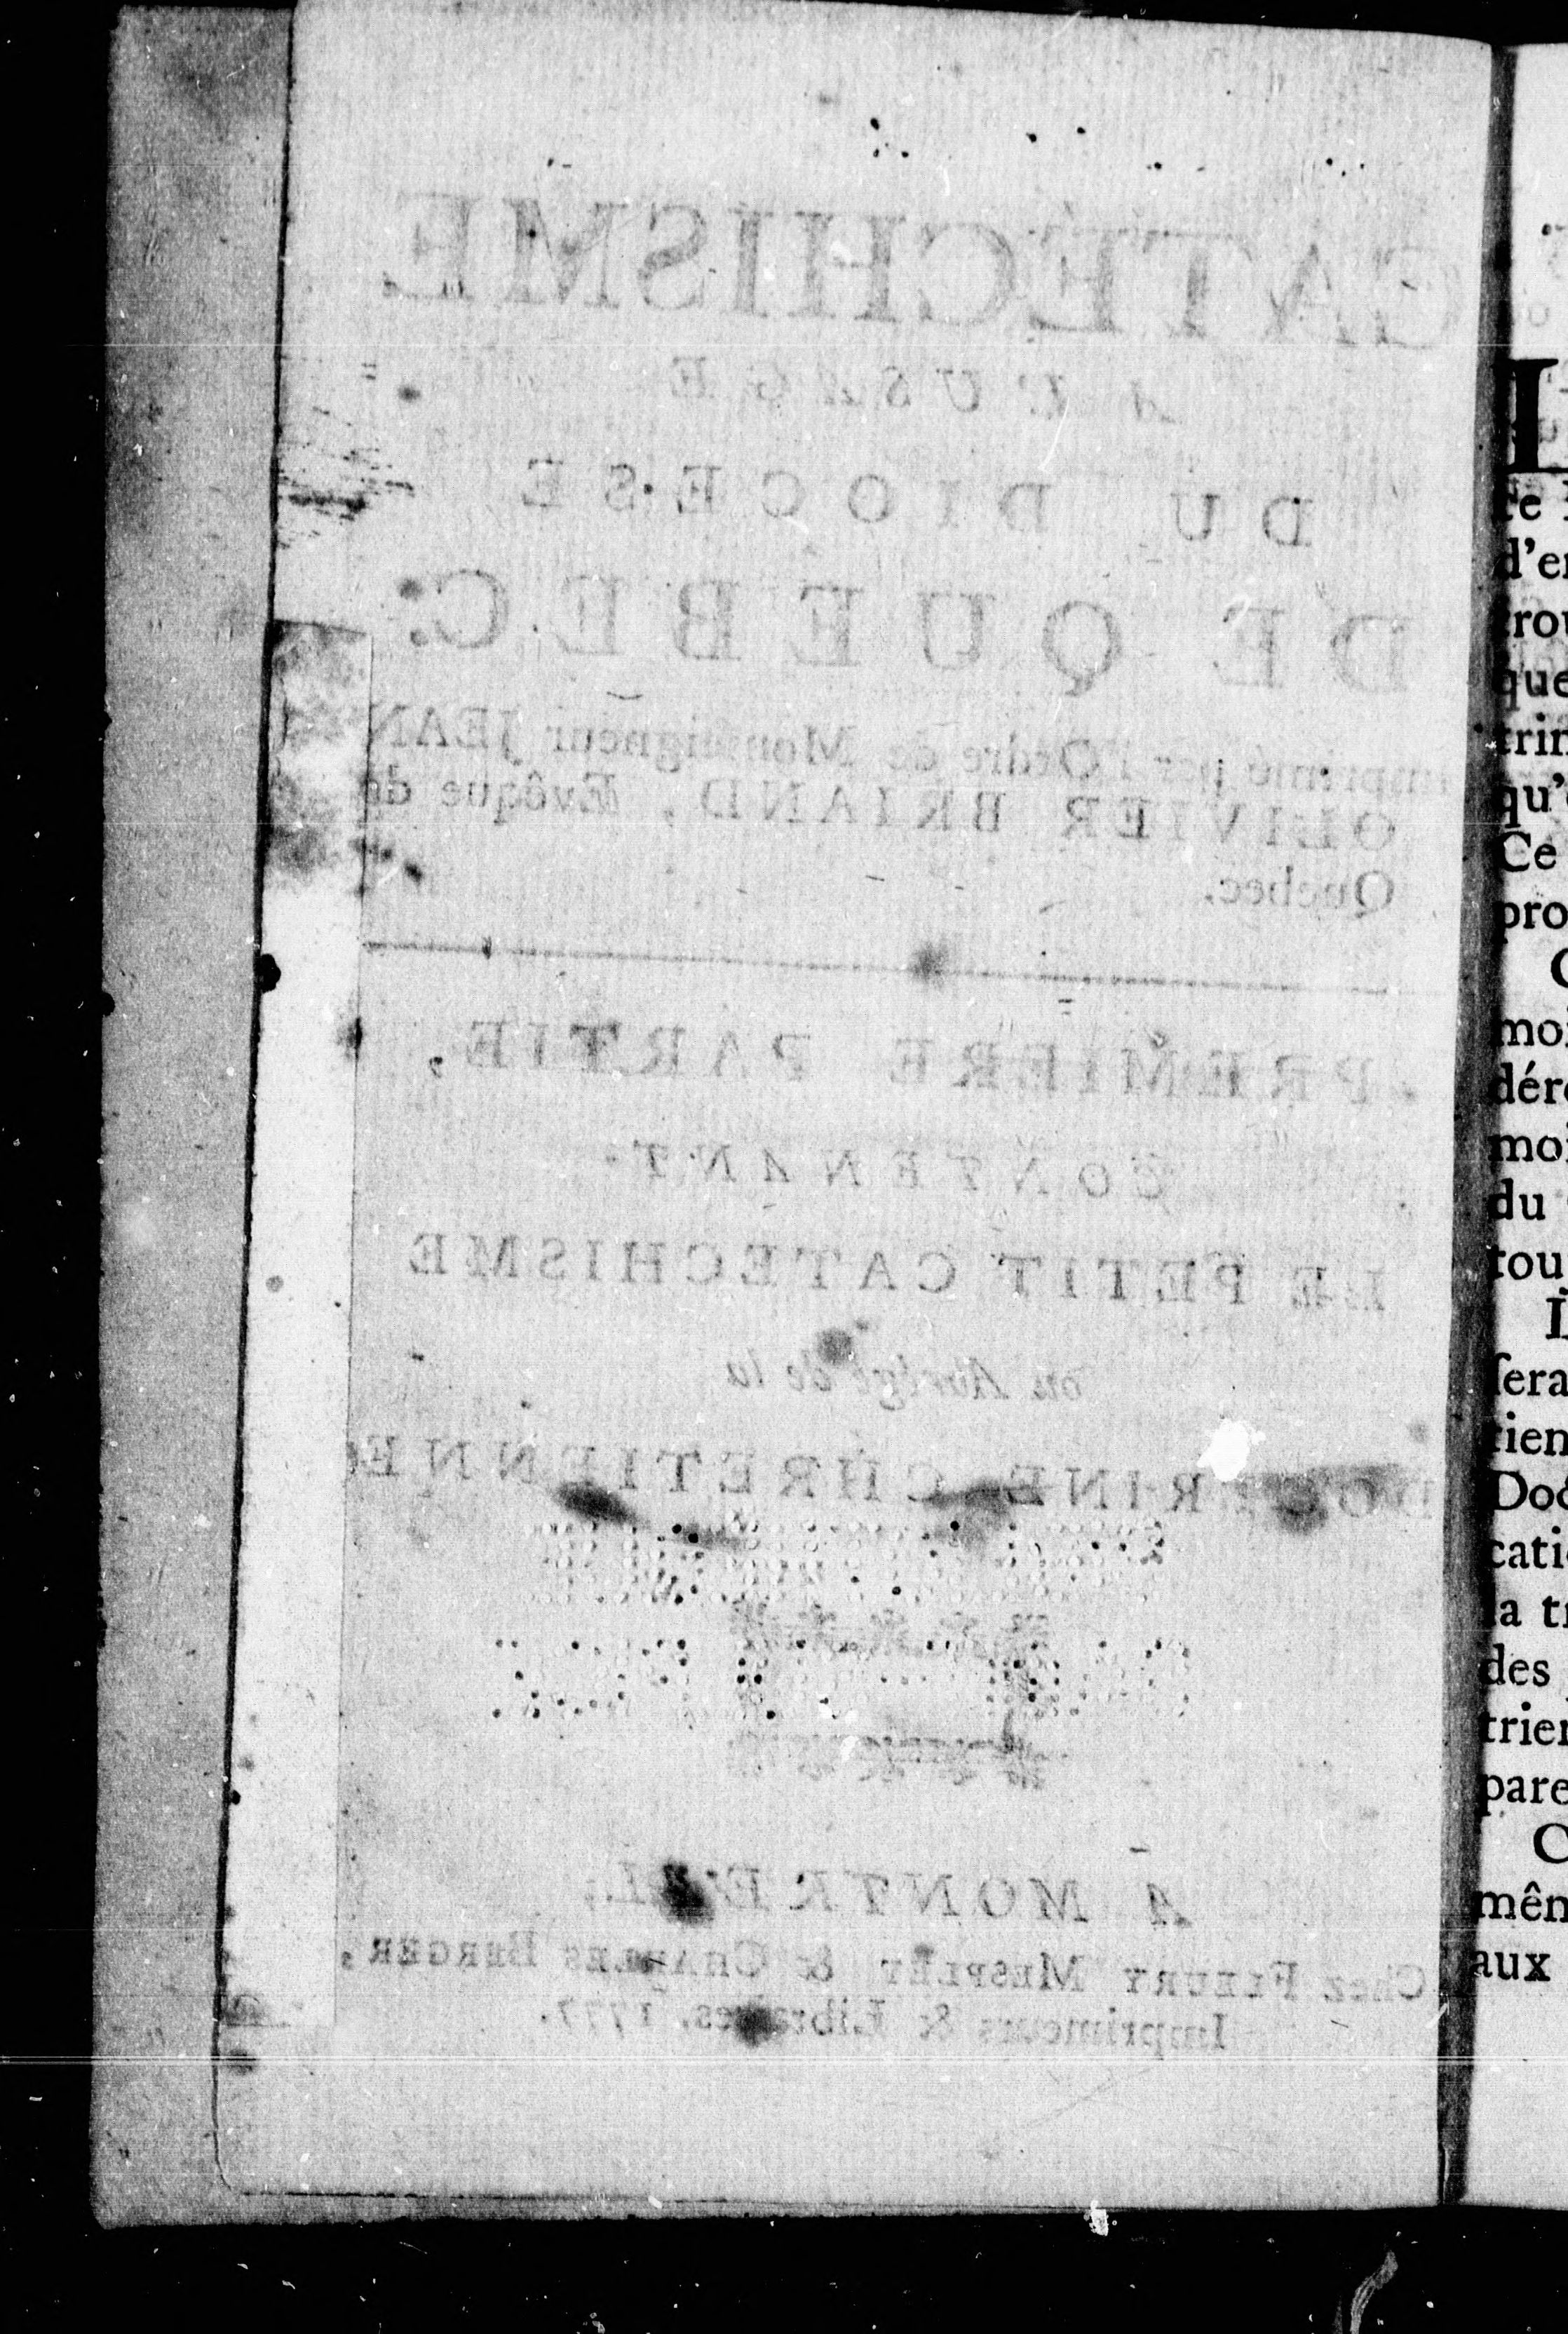 CATECHISME
A L'USAGE
DU DIOCESE
DE QUEBEC.
Imprimé par l'Ordre de Monseigneur JEAN
OLIVIER BRIAND, Evêque de
Quebec.
PREMIERE PARTIE,
CONTENANT
LE PETIT CATECHISME
ou Abrégé de la
DOCTRINE CHRETIENNE
A MONTREAL,
Chez FLEURY MESPLET & CHARLES BERGER,
Imprimeurs & Libraires. 1777.
L
ce
d'en
trou
que
trin
qu'
Ce
pro
moi
déré
moi
du
tou
ſera
tien
Doc
catio
la tr
des
trien
pare
mêm
aux